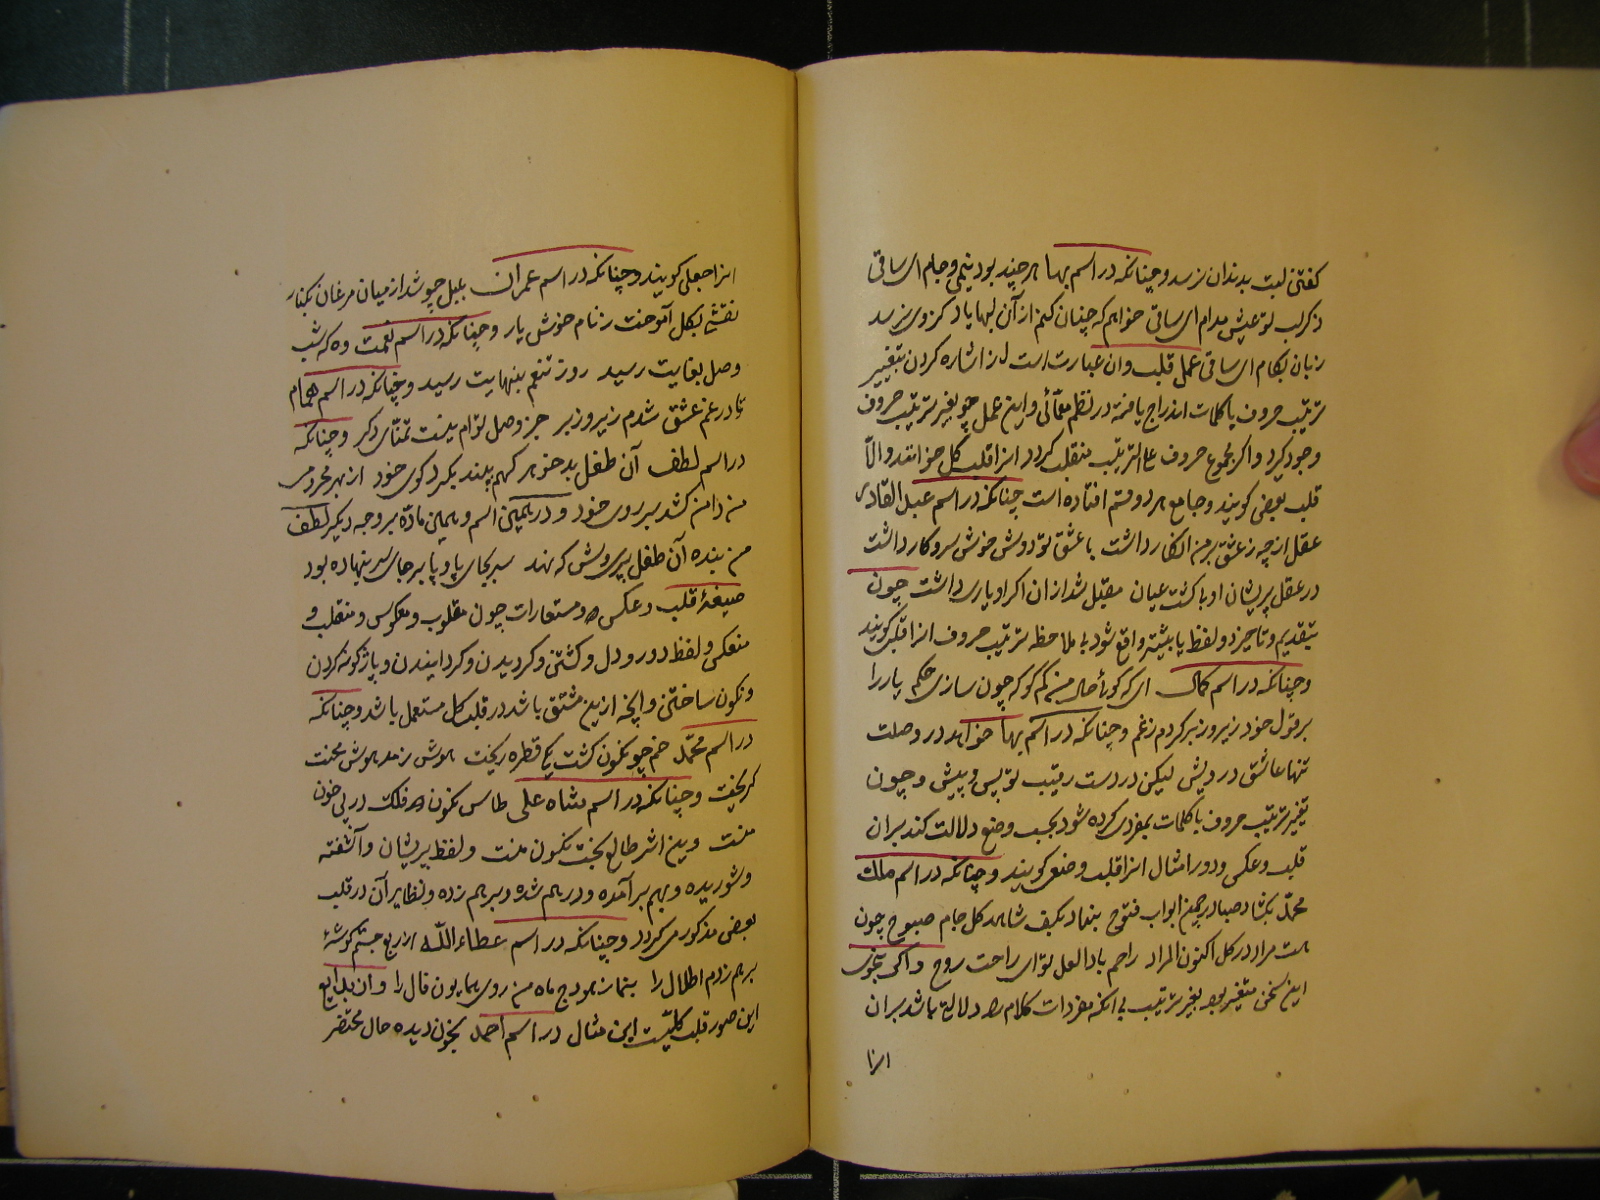 گفتی لبت بدندان نرسد و چنانکه در اسم بها هر چند بود نیم و جام ای ساقی
ذکر لب تو عیش مدام ای ساقی خواهم که چنان کیم از آن لبها یاد کزوی نرسد
زبان بکام ای ساقی عمل قلب و ان عبارت است از اشاره کردن بتغییر
ترتیب حروف یا کلمات اندراج یافته در نظم معمائی و این عمل چو بغیر ترتیب حروف
وجود گیرد و اگر مجموع حروف علی الترتیب منقلب گردد انرا قلب کل خوانند و الّا
قلب بعض گویند و جامع هر دو قسم افتاده است چنانکه در اسم عبد القادر
عقل ارچه ز عشق بر من انکار داشت با عشق تو دوش خوش سر و کار داشت
در عقل پریشان او با گشت عیان مقبل شد از ان اگر او یاری داشت چون
بتقدیم و تاخیر دو لفظ یا بیشتر واقع شود بی ملاحظه ترتیب حروف انرا قلب گویند
و چنانکه در اسم کمال ای که گوئی حال من کم گو که چون سازی حکم یار را
بر قول خود زیر و زبر کردم ز غم و چنانکه در اسم بها خواهد در وصلت
تنها عاشق درویش لیکن در دست رقیب تو پس و پیش و چون
تغیر ترتیب حروف یا کلمات بمفردی کرده شود بحسب وضع دلالت کند بر ان
قلب و عکس و دور امثال انرا قلب وضعی گویند و چنانکه در اسم ملک
محمّد بگشاد صبا در چمن ابواب فتوح بنهاد بکف شاهد گل جام صبوح چون
هست مراد در کل اکنون المراد راحم بادا لعل تو ای راحت روح و اگر بنحوی
این سخن متغیر بود بغیر ترتیب بی انکه مفردات کلام را دلالة باشد بر ان
انرا
انرا جعلی گویند و چنانکه در اسم عمران بلبل چو شد از میان مرغان بکنار
نقشی بگل آموخت ز نام خوش یار و چنانکه در اسم نعمت وه که شب
وصل بغایت رسید روز تنعم بنهایت رسید و چنانکه در اسم همام
تا در غم عشق شدم زیر و زبر جز وصل توام نیست تمنّای دگر و چنانکه
در اسم لطف آن طفل بدخو هر کهم بیند بگرد کوی خود از بهر محرومی
من دامن کشد بر روی خود و در همین اسم و همین مادّه بر وجه دیگر لطف
من بنده آن طفل پریوش که نهد سر بجای پا و پا بر جای سر بنهاده بود
صیغهٔ قلب و عکس و مستعارات چون مقلوب و معکوس و منقلب و
منعکس و لفظ دور و دل و گشتن و گردیدن و گردانیدن و باژگونه کردن
و نگون ساختن و انچه ازین مشتق باشد در قلب کل مستعمل باشد و چنانکه
در اسم محمّد خم چو نگون گشت یکی قطره ریخت هوش ز مدهوش محنت
گریخت و چنانکه در اسم شاه علی طاس نگون فلک در پی خون
منت وین اثر طالع بخت نگون منت و لفظ پریشان و آشفته
و شوریده و بهم برآمده و درهم شده و برهم زده و نظایر آن در قلب
بعض مذکور می گردد و چنانکه در اسم عطاء اللّه از ربع جستم گوشهٔ
برهم زدم اطلال را بنما ز هودج ماه من روی همایون فال را و ان بدایع
این صور قلب کلیّت این مثال در اسم احمد بخون دیده حال مختصر